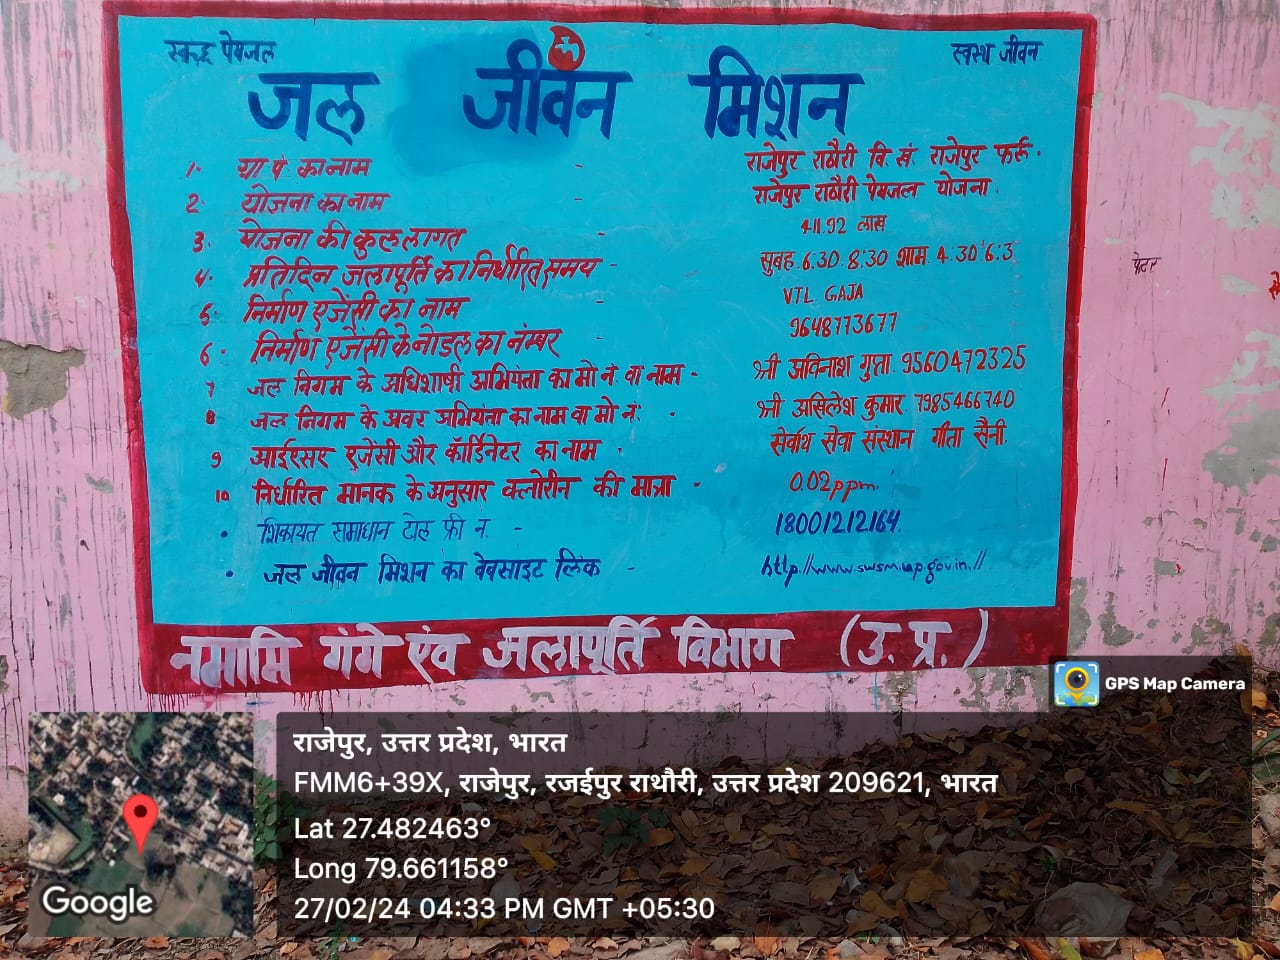 स्वच्छ पेयजल
स्वस्थ जीवन
जल जीवन मिशन
1. ग्रा पं का नाम - राजेपुर राठौरी वि. खं. राजेपुर फर्रु.
2. योजना का नाम - राजेपुर राठौरी पेयजल योजना.
3. योजना की कुल लागत 411.92 लाख
4. प्रतिदिन जलापूर्ति का निर्धारित समय - सुबह. 6.30. 8:30 शाम. 4.30. 6:3
5. निर्माण एजेंसी का नाम - V.T.L. GAJA
6. निर्माण एजेंसी के नोडल का नंम्बर - 9648773677
7 जल निगम के अधिशाषी अभियंता का मो नं. वा नाम - श्री अविनाश गुप्ता. 9560472325
8 जल निगम के अवर अभियंता का नाम वा मो नं. - श्री अखिलेश कुमार 7985466740
9 आईएसए एजेंसी और कॉर्डिनेटर का नाम - सेर्वाथ सेवा संस्थान गीता सैनी.
10 निर्धारित मानक के अनुसार क्लोरीन की मात्रा - 0.02ppm.
• शिकायत समाधान टोल फ्री नं. - 18001212164.
• जल जीवन मिशन का वेबसाइट लिंक - http://www.swsm.up.gov.in.//
नमामि गंगे एंव जलापूर्ति विभाग (उ. प्र.)
पेन्टर
GPS Map Camera
राजेपुर, उत्तर प्रदेश, भारत
FMM6+39X, राजेपुर, रजईपुर राथौरी, उत्तर प्रदेश 209621, भारत
Lat 27.482463°
Long 79.661158°
27/02/24 04:33 PM GMT +05:30
Google